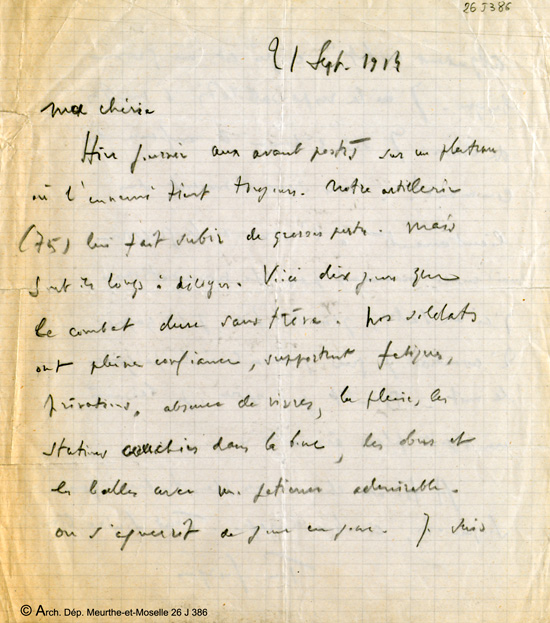 26 J 386
21 Sept. 1914
Ma chérie
Hier journée aux avant postes sur un plateau
où l'ennemi tient toujours. Notre artillerie
(75) lui fait subir de grosses pertes. Mais
sont ils longs à déloger. Voici dix jours que
le combat dure sans trêve. Nos soldats
ont pleine confiance, supportent fatigues,
privations, absence de vivres, la pluie, les
stations couchées dans la boue, les obus et
les balles avec une patience admirable.
On s'aguerrit de jour en jour. Je suis
© Arch. Dép. Meurthe-et-Moselle 26 J 386